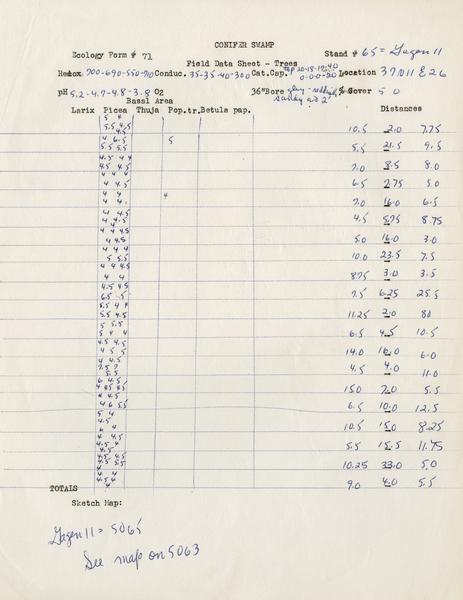 CONIFER SWAMP
Ecology Form # 71 Stand # 65 = Gagen 11
Field Data Sheet - Trees
Redox 700-690-550-710 Conduc. 35-35-40-300 Cat.Cap. 20-18-19-40 Location 37N11E26
0-0-0-20
pH 5.2-4.7-4.8-3.8 O2 36"Bore Cover 50
sandy at 2'
Basal Area Distances
Larix Picea Thuja Pop.tr. Betula pap.
5 4
5.5 4.5 10.5 2.0 7.75
4 6.5 5
5.5 5.5 5.5 21.5 9.5
4.5 4 4
4.5 4.5 7.0 8.5 8.0
4 4 4
4 4.5 6.5 2.75 5.0
4 4 4
4 4 7.0 16.0 6.5
4 4.5
4 4.5 4.5 5.75 8.75
4 4 4.5
4 4.5 5.0 16.0 3.0
4 4
5 5.5 10.0 23.5 7.5
4 4 4.5
4 4 8.75 3.0 3.5
4.5 4.5
6.5 5 7.5 6.25 25.5
5.5 4 4
5.5 4.5 11.25 2.0 80
5 5.5
5 4 4 6.5 4.5 10.5
4.5 4.5
4 5 5 14.0 16.0 6.0
5.5 4.5 4.0 11.0
6 4.5
4 4.5 150 7.0 5.5
4 6 5.5 6.5 10.0 12.5
5 4
4.5 10.5 15.0 8.25
6 4
4 4.5 5.5 15.5 11.75
4.5 4.5
4.5 5.5 10.25 33.0 5.0
4 4
4.5 4 9.0 4.0 5.5
TOTALS
Sketch Map:
Gagen 11 = 5065
See map on 5063